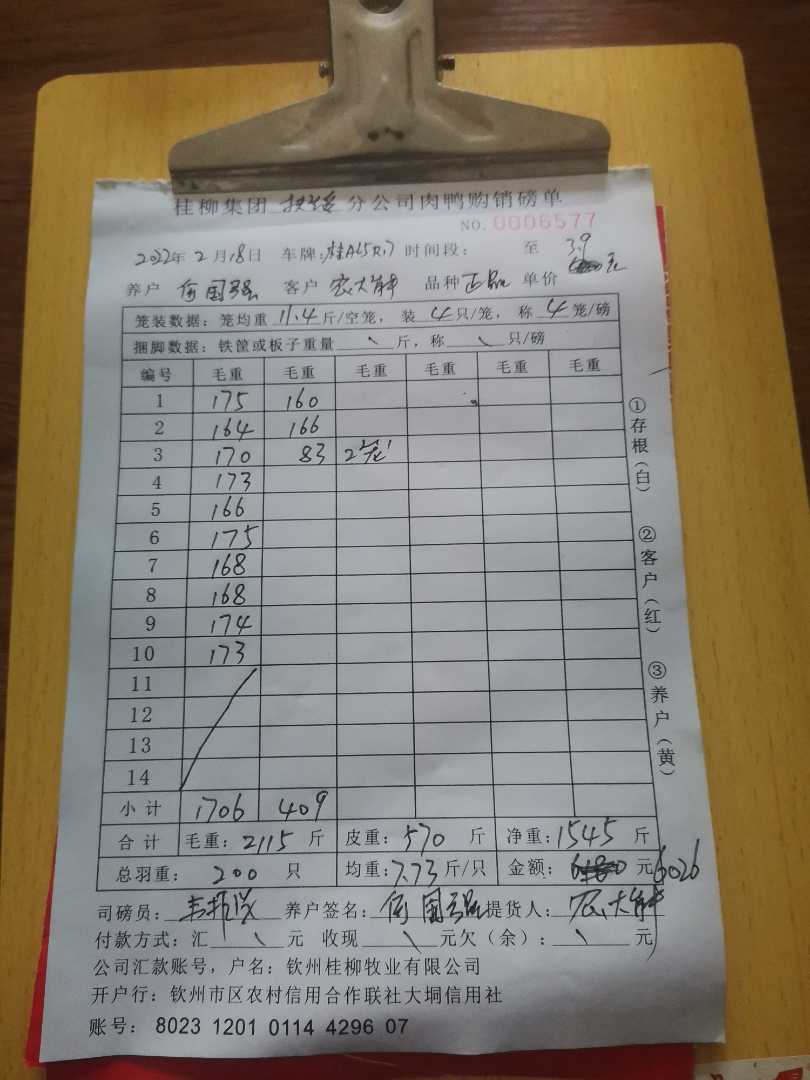 桂柳集团 分公司肉鸭购销磅单
NO. 0006577
2022年 2 月 18日 车牌: 时间段: 至 3.9
养户 何国强 客户 农大军 品种 正品 单价 元
笼装数据: 笼均重 11.4 斤/空笼, 装 4 只/笼, 称 4 笼/磅
捆脚数据: 铁筐或板子重量 \ 斤, 称 \ 只/磅
编号 毛重 毛重 毛重 毛重 毛重 毛重
1 175 160
2 164 166
3 170 83 2笼
4 173
5 166
6 175
7 168
8 168
9 174
10 173
11
12
13
14
小计 1706 409
合计 毛重: 2115 斤 皮重: 570 斤 净重: 1545 斤
总羽重: 200 只 均重: 7.73 斤/只 金额: 元 6026
司磅员: 养户签名: 何国强 提货人: 农大军
付款方式: 汇 \ 元 收现 \ 元欠(余): \ 元
公司汇款账号, 户名: 钦州桂柳牧业有限公司
开户行: 钦州市区农村信用合作联社大垌信用社
账号: 8023 1201 0114 4296 07
①存根(白)
②客户(红)
③养户(黄)